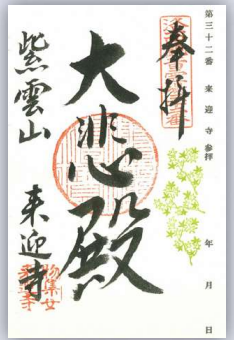 第三十二番 来迎寺参拝 年 月 日
奉拝
大悲殿
紫雲山 来迎寺